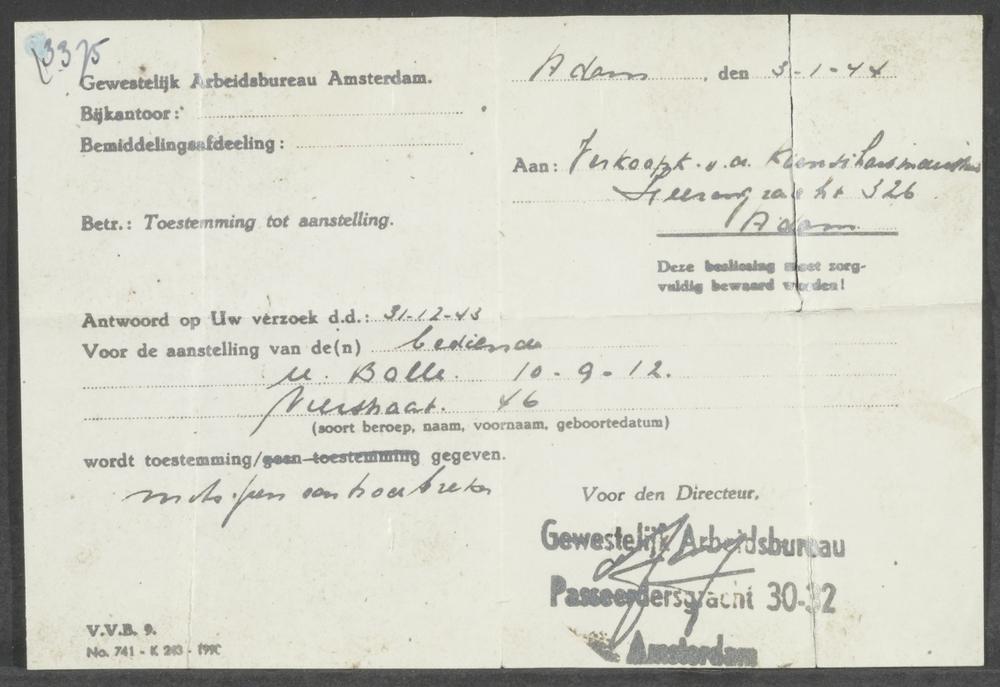 3375
Gewestelijk Arbeidsbureau Amsterdam.
Bijkantoor:
Bemiddelingsafdeeling:
Betr.: Toestemming tot aanstelling.
Adam, den 3-1-44
Aan: Verkoopk. v.a.
Heerengracht 326
Adam
Deze beslissing moet zorg-
vuldig bewaard worden!
Antwoord op Uw verzoek d.d.: 31-12-43
Voor de aanstelling van de(n) bediende
M. Bolle. 10-9-12.
46
(soort beroep, naam, voornaam, geboortedatum)
wordt toestemming/geen toestemming gegeven.
Voor den Directeur,
Gewestelijk Arbeidsbureau
Passeerdersgracht 30-32
Amsterdam
V.V.B. 9.
No. 741 - K 243